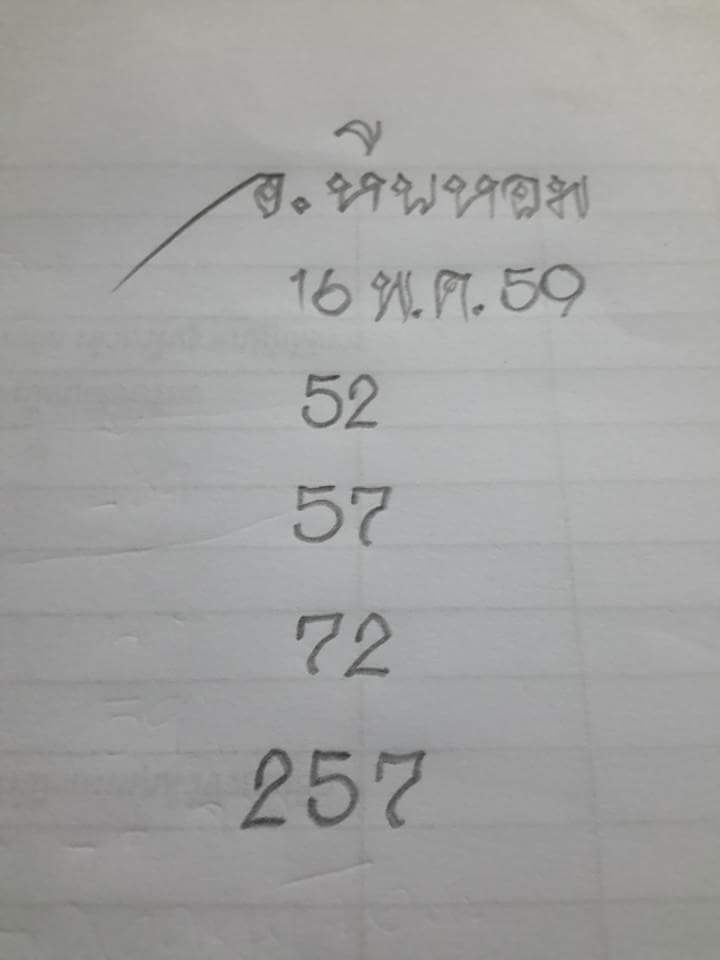 อ.หีบหอม
16 พ.ศ. 59
52
57
72
257